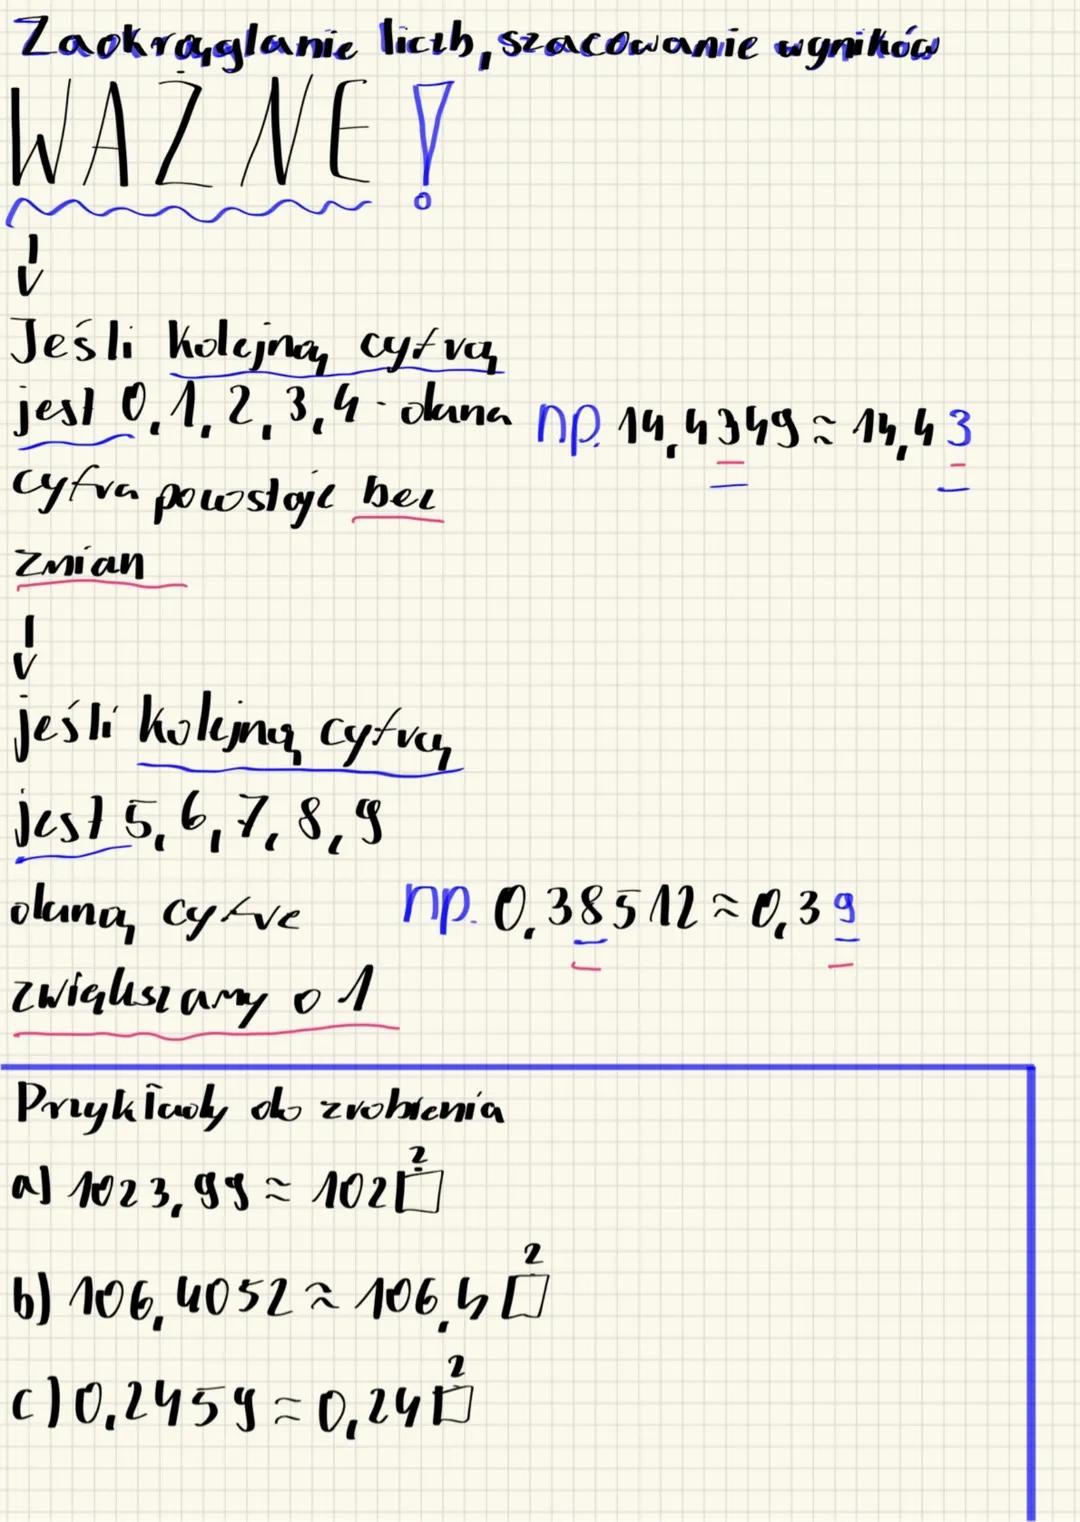 Zaokrąglanie liczb, szacowanie wyników
WAŻNE!
Jeśli kolejną cyfrą
jest 0, 1, 2, 3, 4 - dana np. 14,4349 ≈ 14,43
cyfra pozostaje bez
zmian
jeśli kolejną cyfrą
jest 5, 6, 7, 8, 9
daną cyfrę np. 0,38512 ≈ 0,39
zwiększamy o 1
Przykłady do zrobienia
a) 1023,99 ≈ 102□ ?
b) 106,4052 ≈ 106,4□ ?
c) 0,2459 ≈ 0,24□ ?